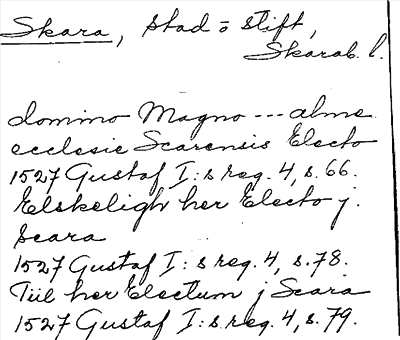 Skara, stad o stift,
Skarab. l.
domino Magno --- alme
ecclesie Scarensis Electo
1527 Gustaf I:s reg. 4, s. 66.
Elskeligh her Electo j
Scara
1527 Gustaf I:s reg. 4, s. 78.
Tiil her Electum j Scara
1527 Gustaf I:s reg. 4, s. 79.